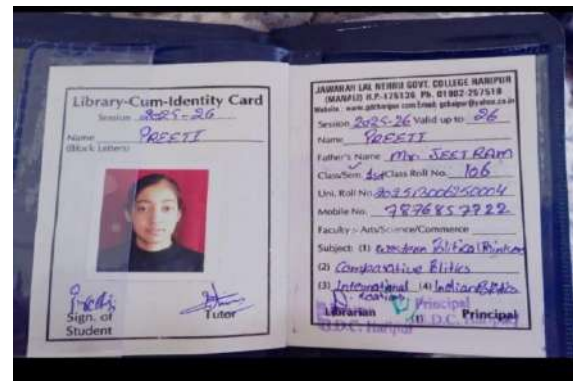 Library-Cum-Identity Card
Session 2025-26
Name PREETI
(Block Letters)
Sign. of
Student
Tutor
JAWAHAR LAL NEHRU GOVT. COLLEGE HARIPUR
(MANALI) H.P.-175136 Ph. 01902-257518
Website : www.gdcharipur.com Email: gcharipur@yahoo.co.in
Session 2025-26 Valid up to 26
Name PREETI
Father's Name Mr. JEET RAM
Class/Sem. 1st Class Roll No. 106
Uni. Roll No.
Mobile No. 7876857722
Faculty :- Arts/Science/Commerce
Subject: (1) Western Political Thinkers
(2) Comparative Politics
(3) International (4) Indian Politics
Librarian Principal
Principal
G.D.C. Haripur G.D.C. Haripur